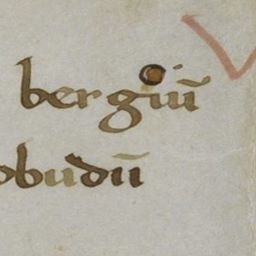 bergiū
obudū